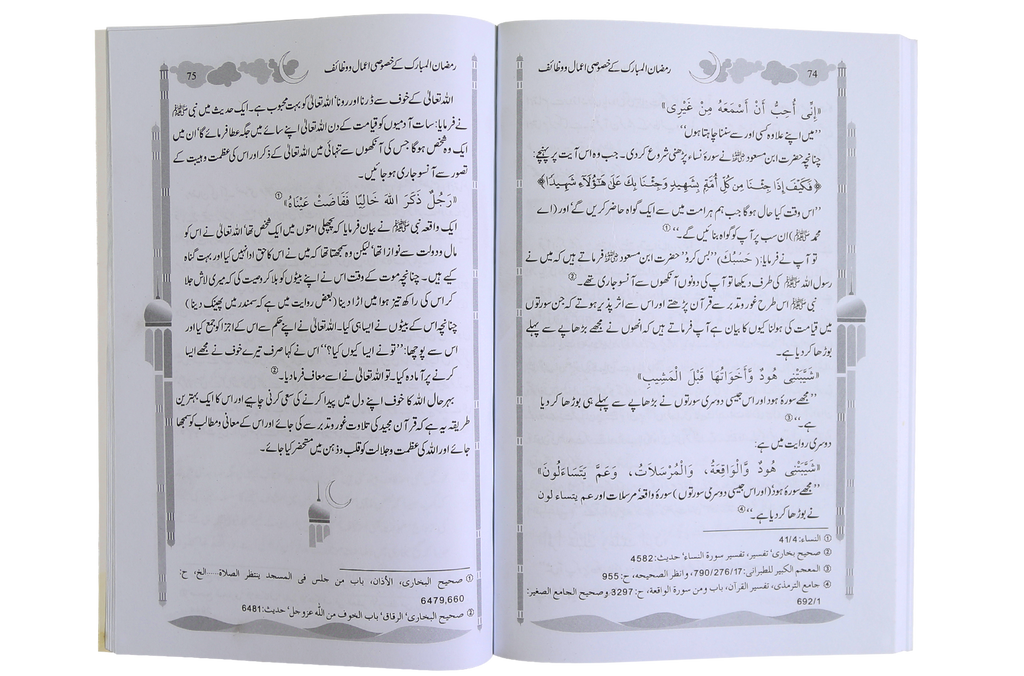 74
رمضان المبارک کے خصوصی اعمال و وظائف
«إِنِّى أُحِبُّ أَنْ أَسْمَعَهُ مِنْ غَيْرِى»
’’میں اپنے علاوہ کسی اور سے سننا چاہتا ہوں‘‘
چنانچہ حضرت ابن مسعود ﷺ نے سورۂ نساء پڑھنی شروع کردی۔ جب وہ اس آیت پر پہنچے:
﴿ فَكَيْفَ إِذَا جِئْنَا مِن كُلِّ أُمَّةٍ بِشَهِيدٍ وَجِئْنَا بِكَ عَلَىٰ هَـٰٓؤُلَآءِ شَهِيدًا ﴾
’’اس وقت کیا حال ہوگا جب ہم ہر امت میں سے ایک گواہ حاضر کریں گے‘ اور (اے
محمد ﷺ) ان سب پر آپ کو گواہ بنائیں گے۔‘‘ ①
تو آپ نے فرمایا: (حَسْبُكَ) ’’بس کرو‘‘ حضرت ابن مسعود ﷺ فرماتے ہیں کہ میں نے
رسول اللہ ﷺ کی طرف دیکھا تو آپ کی دونوں آنکھوں سے آنسو جاری تھے۔ ②
نبی ﷺ اس طرح غور و تدبر سے قرآن پڑھتے اور اس سے اثر پذیر ہوتے کہ جن سورتوں
میں قیامت کی ہولناکیوں کا بیان ہے آپ فرماتے ہیں کہ انھوں نے مجھے بڑھاپے سے پہلے
بوڑھا کردیا ہے۔
«شَيَّبَتْنِى هُودٌ وَّأَخَوَاتُهَا قَبْلَ الْمَشِيبِ»
’’مجھے سورۂ ہود اور اس جیسی دوسری سورتوں نے بڑھاپے سے پہلے ہی بوڑھا کردیا
ہے۔‘‘ ③
دوسری روایت میں ہے:
«شَيَّبَتْنِى هُودٌ وَّالْوَاقِعَةُ، وَالْمُرْسَلَاتُ، وَعَمَّ يَتَسَاءَلُونَ»
’’مجھے سورۂ ہود‘ (اور اس جیسی دوسری سورتوں) سورۂ واقعہ‘ مرسلات اور عم يتساء لون
نے بوڑھا کردیا ہے۔‘‘ ④
① النساء: 41/4
② صحیح بخاری‘ تفسیر، تفسیر سورة النساء‘ حدیث: 4582
③ المعجم الكبير للطبرانی: 790/276/17، وانظر الصحیحه، ح: 955
④ جامع الترمذی، تفسیر القرآن، باب ومن سورة الواقعة، ح: 3297 وصحیح الجامع الصغیر:
692/1
75
رمضان المبارک کے خصوصی اعمال و وظائف
اللہ تعالیٰ کے خوف سے ڈرنا اور رونا‘ اللہ تعالیٰ کو بہت محبوب ہے۔ ایک حدیث میں نبی ﷺ
نے فرمایا: سات آدمیوں کو قیامت کے دن اللہ تعالیٰ اپنے سائے میں جگہ عطا فرمائے گا‘ ان میں
ایک وہ شخص ہوگا جس کی آنکھوں سے تنہائی میں اللہ تعالیٰ کے ذکر اور اس کی عظمت و ہیبت کے
تصور سے آنسو جاری ہوجائیں۔
«رَجُلٌ ذَكَرَ اللّٰهَ خَالِيًا فَفَاضَتْ عَيْنَاهُ» ①
ایک واقعہ نبی ﷺ نے بیان فرمایا کہ پچھلی امتوں میں ایک شخص تھا‘ اللہ تعالیٰ نے اس کو
مال و دولت سے نوازا تھا‘ لیکن وہ سمجھتا تھا کہ میں نے اس کا حق ادا نہیں کیا اور بہت گناہ
کیے ہیں۔ چنانچہ موت کے وقت اس نے اپنے بیٹوں کو بلا کر وصیت کی کہ میری لاش جلا
کر اس کی راکھ تیز ہوا میں اڑا دینا (بعض روایت میں ہے کہ سمندر میں پھینک دینا)
چنانچہ اس کے بیٹوں نے ایسا ہی کیا۔ اللہ تعالیٰ نے اپنے حکم سے اس کے اجزا کو جمع کیا اور
اس سے پوچھا: ’’تو نے ایسا کیوں کیا؟‘‘ اس نے کہا صرف تیرے خوف نے مجھے ایسا
کرنے پر آمادہ کیا۔ تو اللہ تعالیٰ نے اسے معاف فرما دیا۔ ②
بہرحال اللہ کا خوف اپنے دل میں پیدا کرنے کی سعی کرنی چاہیے اور اس کا ایک بہترین
طریقہ یہ ہے کہ قرآن مجید کی تلاوت غور و تدبر سے کی جائے اور اس کے معانی و مطالب کو سمجھا
جائے اور اللہ کی عظمت و جلالت کو قلب و ذہن میں متحضر کیا جائے۔
① صحیح البخاری، الأذان، باب من جلس فی المسجد ینتظر الصلاة.....الخ، ح:
6479,660
② صحیح البخاری‘ الرقاق‘ باب الخوف من اللّٰه عزوجل‘ حدیث: 6481